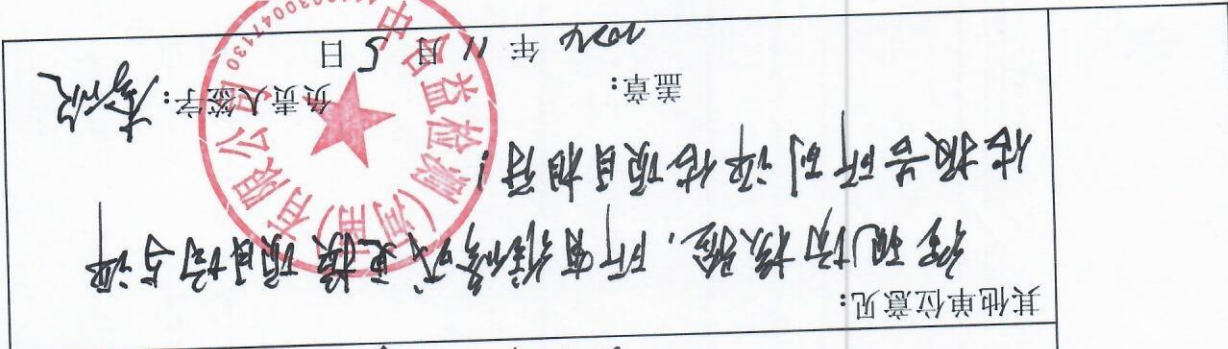 其他单位意见:
经现场核验,所有维修或更换项目均与评
估报告所列评估项目相符!
盖章:
负责人签字:
2024年11月5日
中合益检测(河南)有限公司